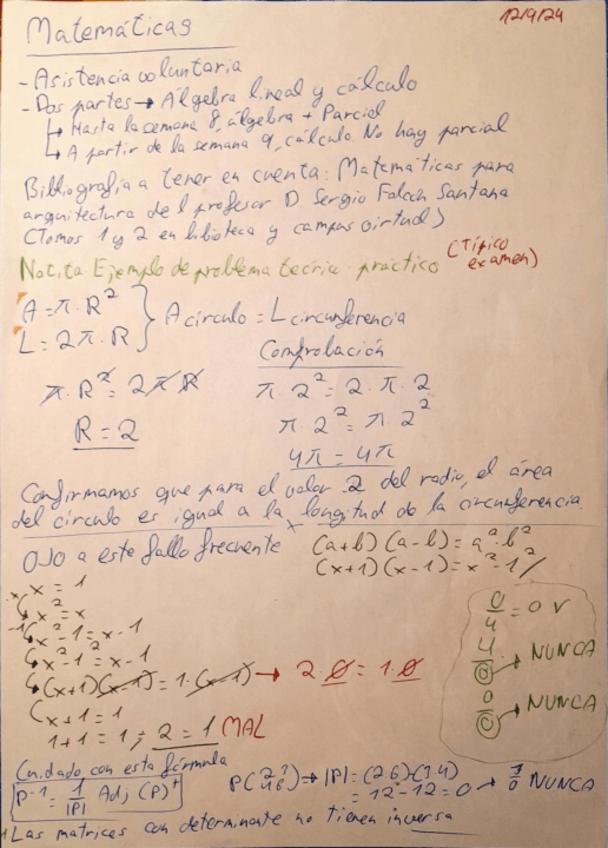 12/9/24
Matemáticas
- Asistencia voluntaria
- Dos partes → Álgebra lineal y cálculo
↳ Hasta la semana 8, álgebra + Parcial
↳ A partir de la semana 9, cálculo. No hay parcial
Bibliografía a tener en cuenta: Matemáticas para
arquitectura del profesor D Sergio Falcón Santana
(Tomos 1 y 2 en biblioteca y campus virtual)
Notita Ejemplo de problema teórico-práctico (Típico
examen)
A = π · R²
L = 2π · R
A círculo = L circunferencia
Comprobación
π · R² = 2πR
R = 2
π · 2² = 2 · π · 2
π · 2² = π · 2²
4π = 4π
Confirmamos que para el valor 2 del radio, el área
del círculo es igual a la longitud de la circunferencia.
OJO a este fallo frecuente
(a+b)(a-b) = a²-b²
(x+1)(x-1) = x²-1²
x = 1
x² = x
x²-1 = x-1
x²-1² = x-1
(x+1)(x-1) = 1·(x-1) → 2·0 = 1·0
x+1 = 1
1+1 = 1; 2 = 1 MAL
0/4 = 0 V
4/0 → NUNCA
0/0 → NUNCA
Cuidado con esta fórmula
P⁻¹ = 1/|P| Adj (P)ᵗ
|P| = (2·6)-(3·4)
= 12-12 = 0 → 1/0 NUNCA
Las matrices con determinante no tienen inversa